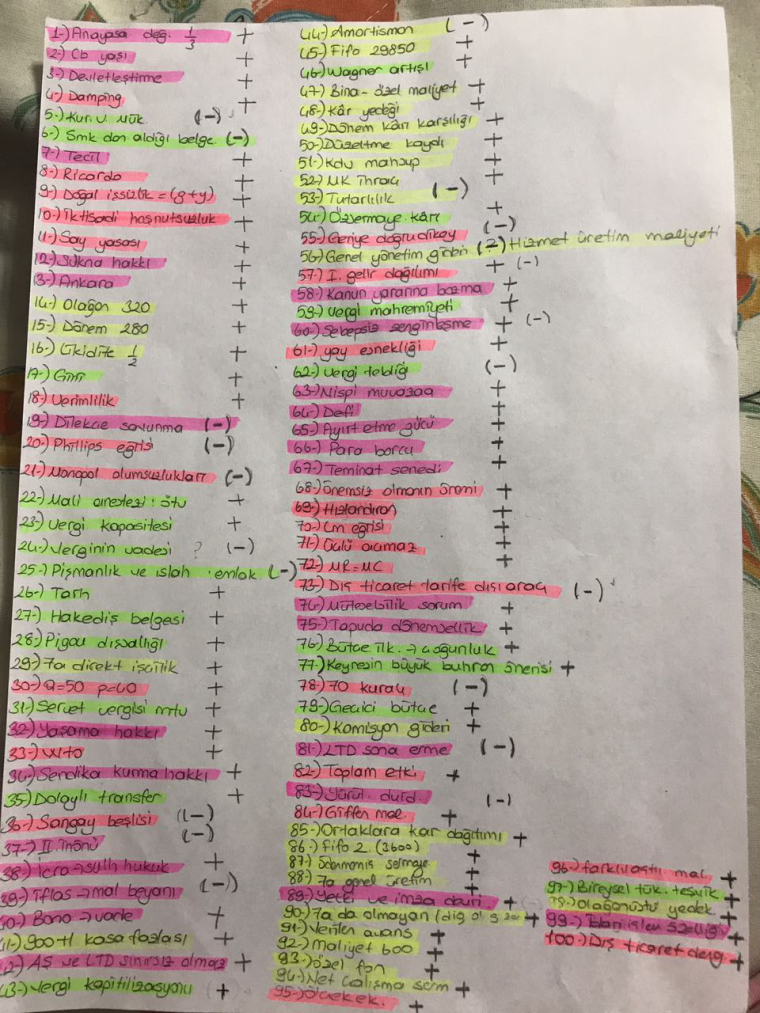 1-) Anayasa değ. 1/3 +
2-) Cb yaşı +
3-) Devletleştirme +
4-) Damping +
5-) Kur. U MÜK (-)
6-) Smk dan aldığı belge (-)
7-) Tecil +
8-) Ricardo +
9-) Doğal işsizlik = (g+y) +
10-) İktisadi hoşnutsuzluk +
11-) Say yasası +
12-) Sükna hakkı +
13-) Ankara +
14-) Olağan 320 +
15-) Dönem 280 +
16-) Likidite 1/2 +
17-) Gini +
18-) Verimlilik +
19-) Dilekçe savunma (-)
20-) Phillips eğrisi (-)
21-) Monopol olumsuzlukları (-)
22-) Mali anestezi: ötv +
23-) Vergi kapasitesi +
24-) Verginin vadesi ? (-)
25-) Pişmanlık ve ıslah emlak (-)
26-) Tarh +
27-) Hakediş belgesi +
28-) Pigou dışsallığı +
29-) 7a direkt işçilik +
30-) Q=50 p=40 +
31-) Servet vergisi mtv +
32-) Yaşama hakkı +
33-) WTO +
34-) Sendika kurma hakkı +
35) Dolaylı transfer +
36-) Şangay beşlisi (-)
37-) II. İnönü (-)
38-) İcra → sulh hukuk +
39-) İflas → mal beyanı (-)
40-) Bono → vade +
41-) 900 tl kasa fazlası +
42-) AŞ ve LTD sınırsız olmaz +
43-) Vergi kapitilizasyonu +
44-) Amortisman (-)
45-) Fifo 29850 +
46-) Wagner artışı +
47-) Bina - özel maliyet +
48-) Kâr yedeği +
49-) Dönem kârı karşılığı +
50-) Düzeltme kaydı +
51-) Kdv mahsup +
52-) MK ihracı +
53-) Tutarlılık (-)
54-) Özsermaye kârı +
55-) Geriye doğru dikey (-)
56-) Genel yönetim gideri (?) Hizmet üretim maliyeti
57-) I. gelir dağılımı + (-)
58-) Kanun yararına bozma +
59-) Vergi mahremiyeti +
60-) Sebepsiz zenginleşme + (-)
61-) yay esnekliği +
62-) Vergi tebliğ (-)
63-) Nispi muvazaa +
64-) Defi +
65-) Ayırt etme gücü +
66-) Para borcu +
67-) Teminat senedi +
68-) önemsiz olmanın önemi +
69-) Hızlandıran +
70-) Lm eğrisi +
71-) Üçlü açmaz +
72-) MR=MC +
73-) Dış ticaret tarife dışı araç (-)
74-) Müteselsillik sorum +
75-) Tapuda dönemsellik +
76-) Bütçe ilk. → çoğunluk +
77-) Keynesin büyük buhran önerisi +
78-) 70 kuralı (-)
79-) Geçici bütçe +
80-) Komisyon gideri +
81-) LTD sona erme (-)
82-) Toplam etki +
83-) Yürüt. durd. (-)
84-) Giffen mal +
85-) Ortaklara kar dağıtımı +
86-) Fifo 2. (3600) +
87-) Sermaye +
88-) 7a genel üretim +
89-) Yetki ve imza devri +
90-) 7a da olmayan (dığ ol g zar +
91-) Verilen avans +
92-) maliyet 600 +
93-) özel fon +
94-) Net çalışma serm +
95-) ölçekek. +
96-) farklılaştı mal +
97-) Bireysel tük. teşvik +
98-) olağanüstü yedek +
99-) +
100-) Dış ticaret değ. +